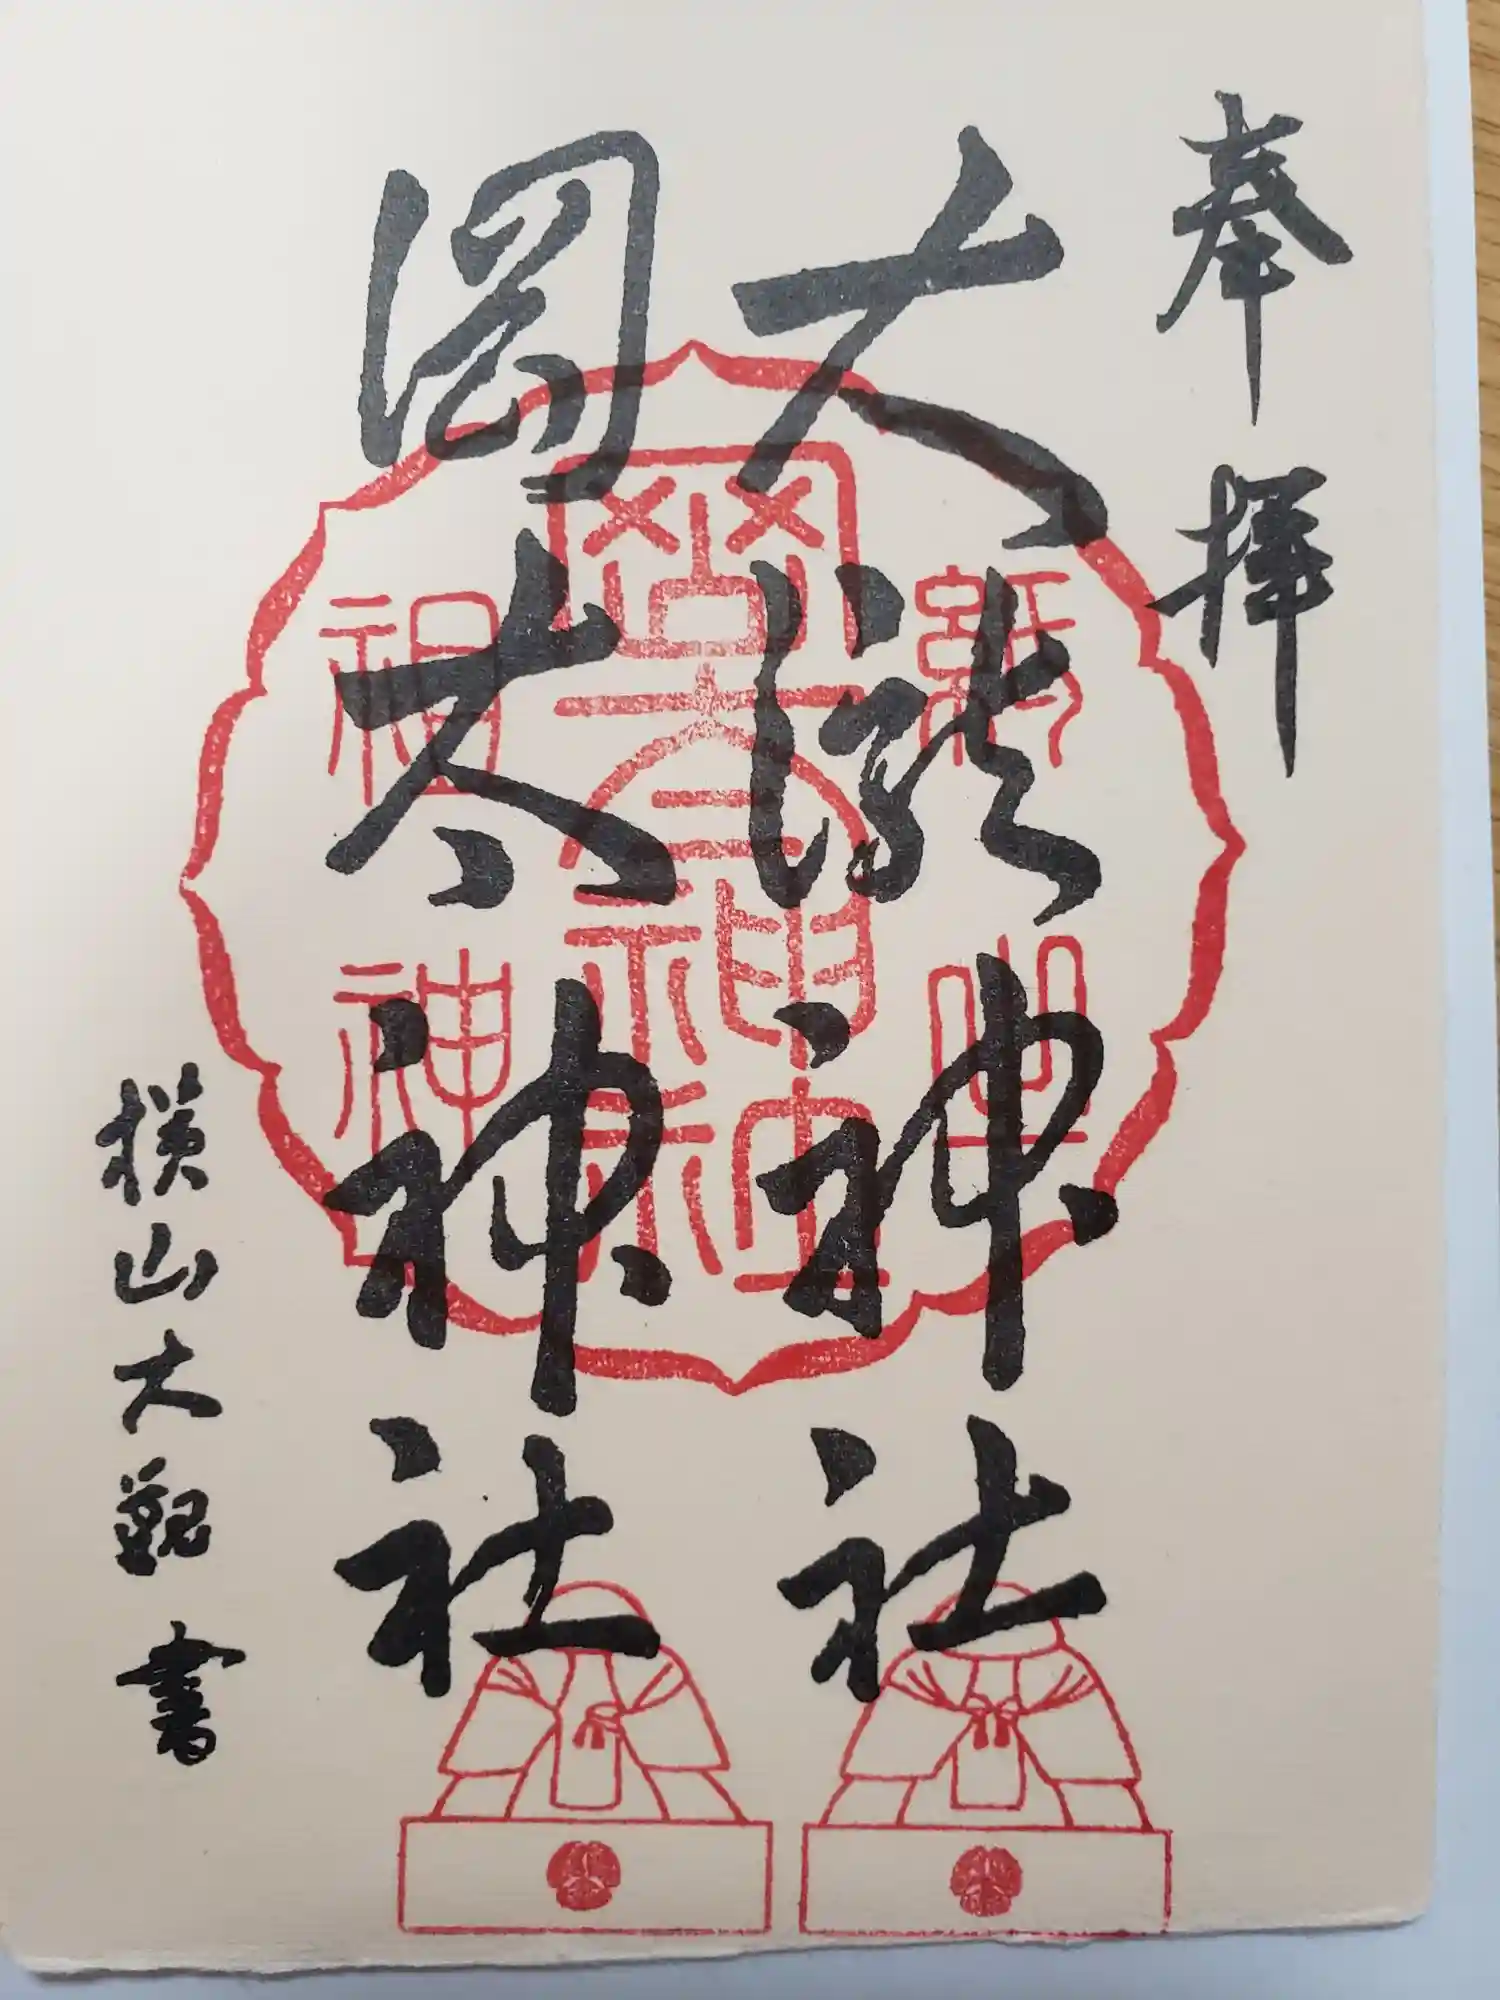 奉拝
大瀧神社
岡太神社
横山大観書
紙之
岡太神社
祖神